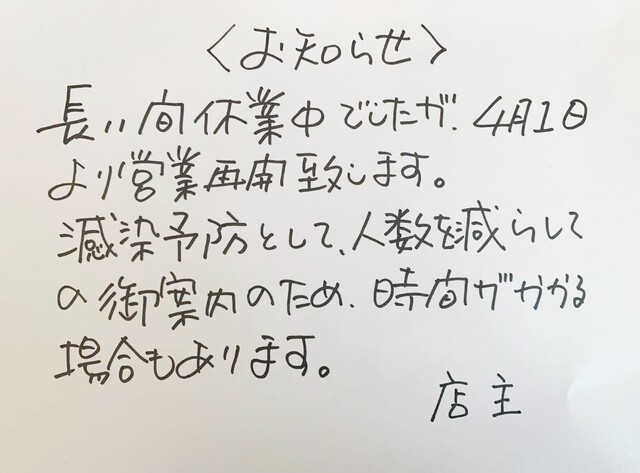 〈お知らせ〉
長い間休業中でしたが、4月1日
より営業再開致します。
減染予防として、人数を減らして
の御案内のため、時間がかかる
場合もあります。
店主